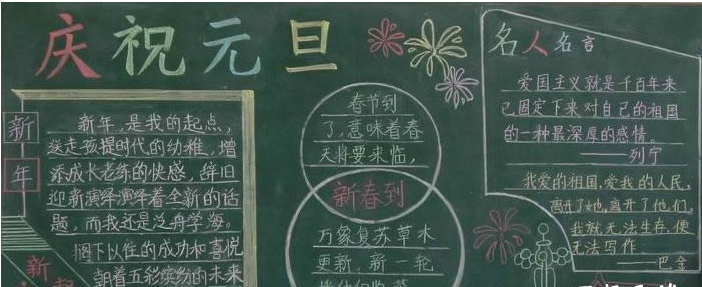 庆祝元旦
新年
新年，是我的起点，
送走孩提时代的幼稚，增
添成长老练的快感，辞旧
迎新演绎演绎着全新的话
题，而我还是泛舟学海。
搁下以往的成功和喜悦
朝着五彩缤纷的未来
新
春节到
了，意味着春
天将要来临，
新春到
万象复苏草木
更新，新一轮
名人名言
爱国主义就是千百年来
己固定下来对自己的祖国
的一种最深厚的感情。
——列宁
我爱的祖国，爱我的人民，
离开了她，离开了他们，
我就无法生存，便
无法写作。
——巴金